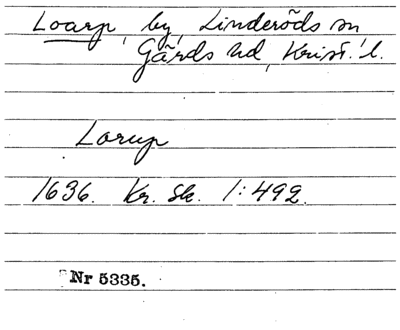 Loarp, by, Linderöds sn
Gärds hd, Krist. l.
Lorup
1636. Kr. Sk. 1:492.
Nr 5335.